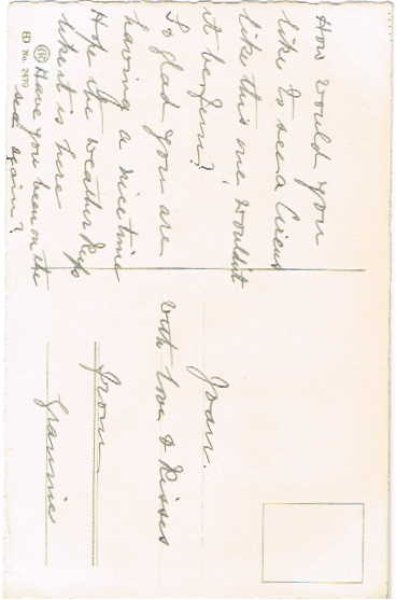 How would you
like to see a Circus
like this one wouldn't
it be fun?
So glad you are
having a nice time
Hope the weather keeps
like it is here
Have you been on the
sea again?
ED No. 2470
Joan.
with love & Kisses
from
Grannie